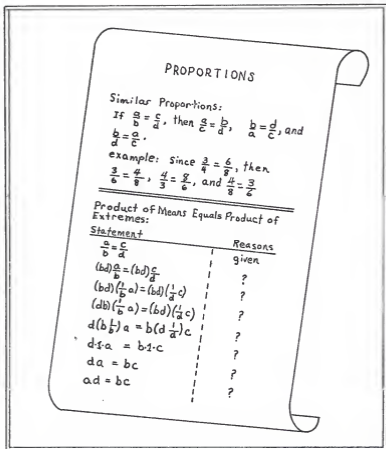 PROPORTIONS
Similar Proportions:
If a/b = c/d, then a/c = b/d, b/a = d/c, and
b/d = a/c.
example: Since 3/4 = 6/8, then
3/6 = 4/8, 4/3 = 8/6, and 4/8 = 3/6
Product of Means Equals Product of
Extremes:
Statement Reasons
a/b = c/d given
(bd)a/b = (bd)c/d ?
(bd)(1/b a) = (bd)(1/d c) ?
(db)(1/b a) = (bd)(1/d c) ?
d(b 1/b)a = b(d 1/d)c ?
d·1·a = b·1·c ?
da = bc ?
ad = bc ?